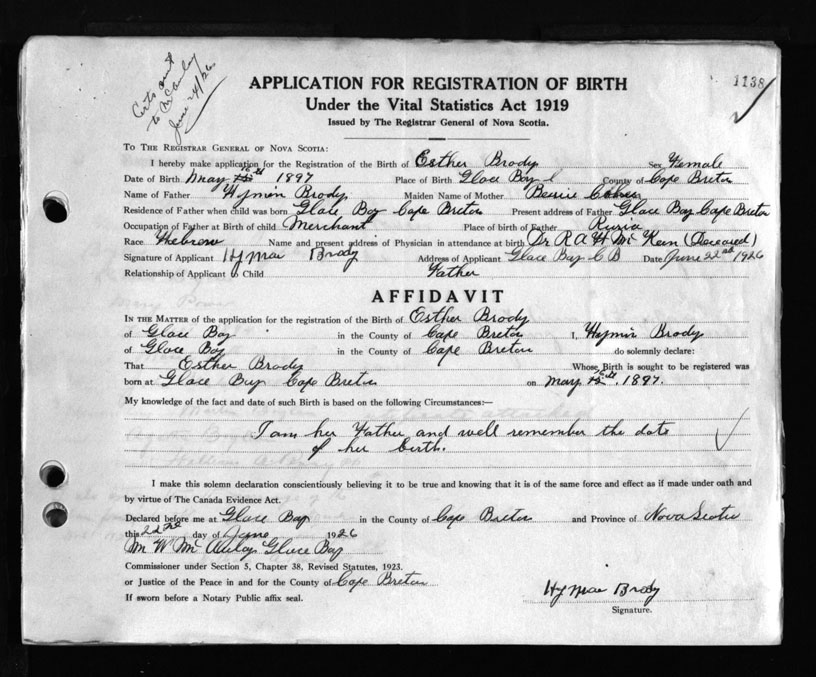 Certs sent
to McAulay
June 24/26
1138
APPLICATION FOR REGISTRATION OF BIRTH
Under the Vital Statistics Act 1919
Issued by The Registrar General of Nova Scotia.
To The Registrar General of Nova Scotia:
I hereby make application for the Registration of the Birth of Esther Brody Sex Female
Date of Birth May 1897 Place of Birth Glace Bay County of Cape Breton
Name of Father Hymin Brody Maiden Name of Mother Bessie Cohen
Residence of Father when child was born Glace Bay Cape Breton Present address of Father Glace Bay Cape Breton
Occupation of Father at Birth of child Merchant Place of birth of Father Rusia
Race Hebrew Name and present address of Physician in attendance at birth Dr R A H McKeen (Deceased)
Signature of Applicant Hyman Brody Address of Applicant Glace Bay C B Date June 22nd 1926
Relationship of Applicant to Child Father
AFFIDAVIT
In the Matter of the application for the registration of the Birth of Esther Brody
of Glace Bay in the County of Cape Breton I, Hymin Brody
of Glace Bay in the County of Cape Breton do solemnly declare:
That Esther Brody Whose Birth is sought to be registered was
born at Glace Bay Cape Breton on May 1897.
My knowledge of the fact and date of such Birth is based on the following Circumstances:—
I am her Father and well remember the date
of her birth.
I make this solemn declaration conscientiously believing it to be true and knowing that it is of the same force and effect as if made under oath and
by virtue of The Canada Evidence Act.
Declared before me at Glace Bay in the County of Cape Breton and Province of Nova Scotia
this 22nd day of June 1926
M W McAulay Glace Bay
Commissioner under Section 5, Chapter 38, Revised Statutes, 1923.
or Justice of the Peace in and for the County of Cape Breton
If sworn before a Notary Public affix seal.
Hyman Brody
Signature.